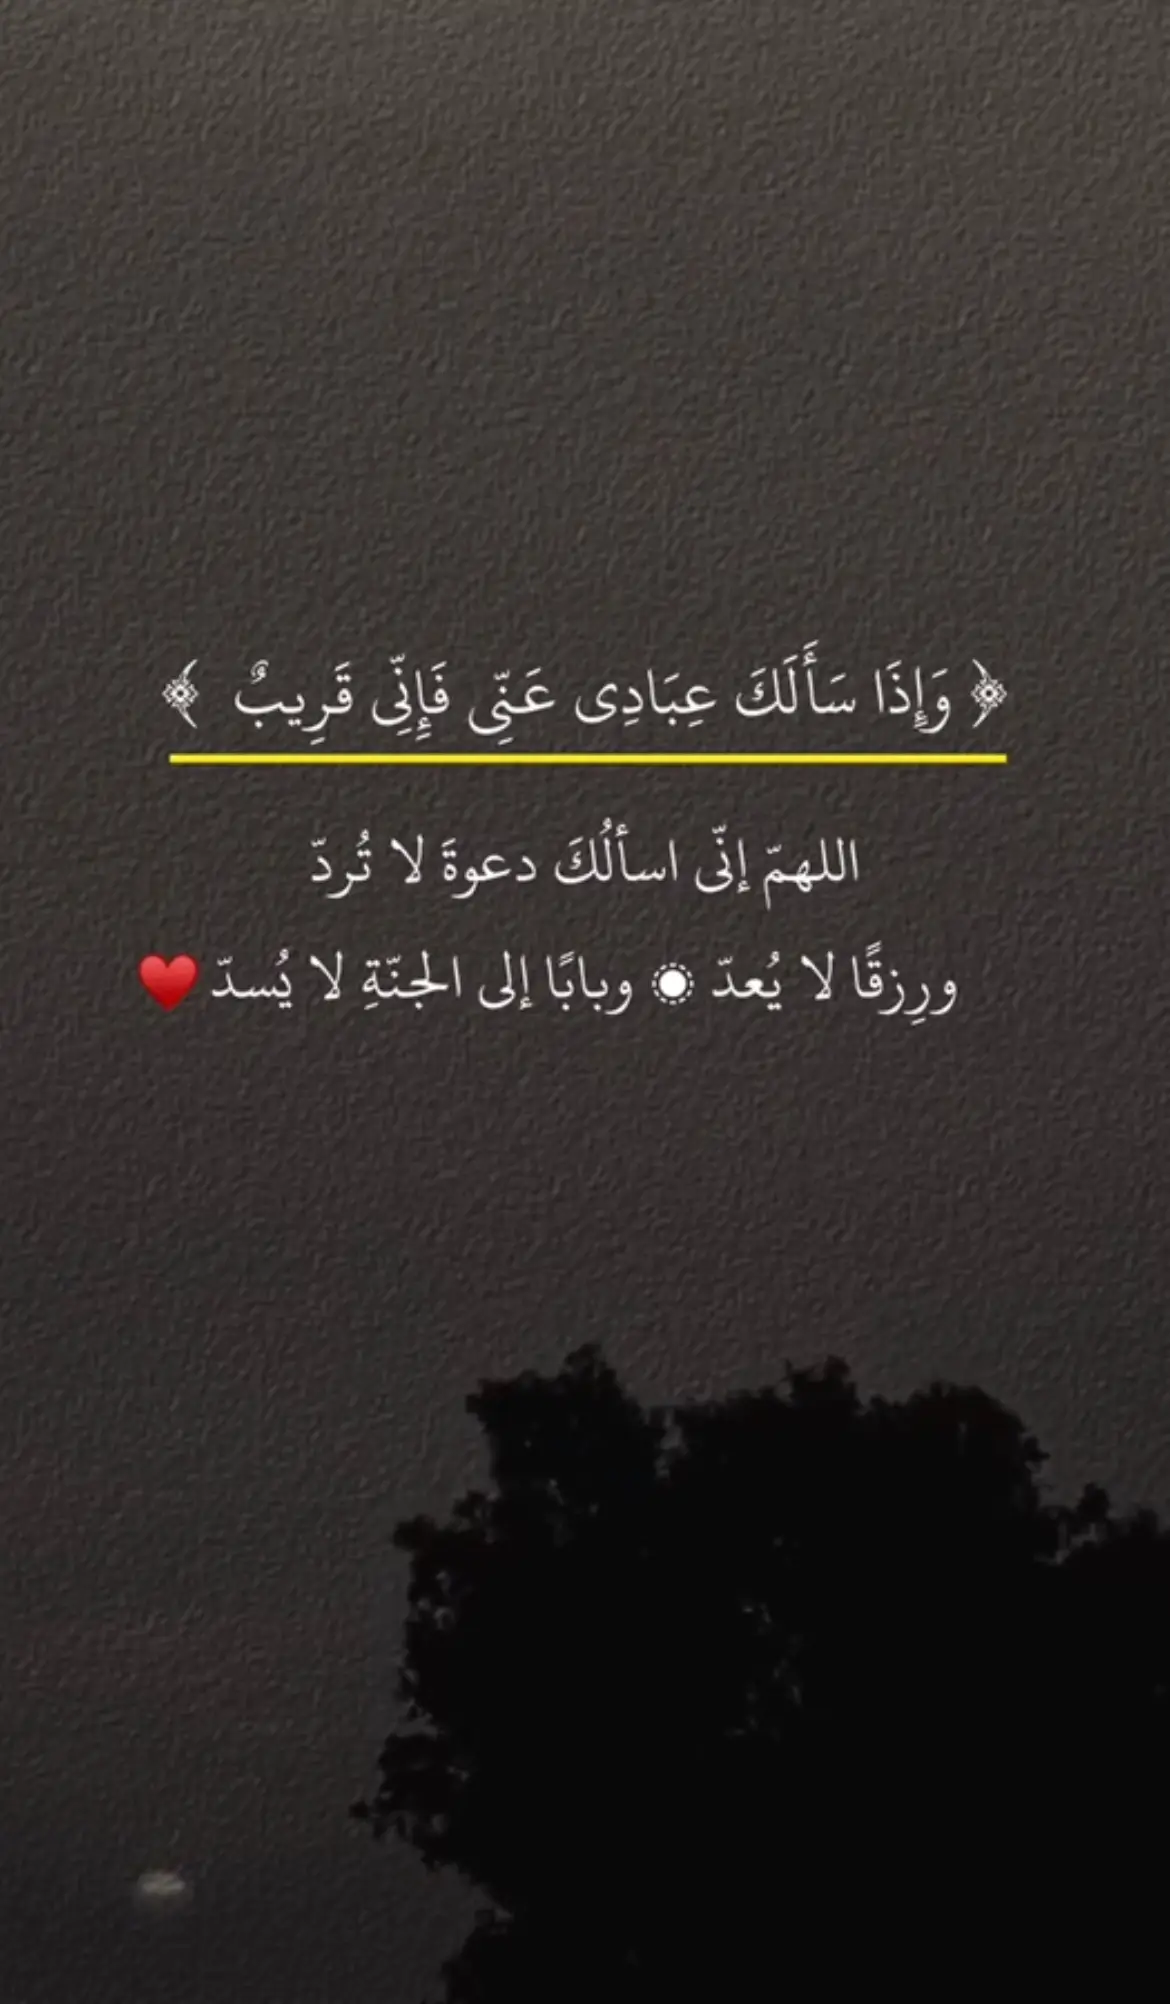 ﴿ وَإِذَا سَأَلَكَ عِبَادِى عَنِّى فَإِنِّى قَرِيبٌ ﴾
اللهمّ إنّى اسألُكَ دعوةَ لا تُردّ
ورِزقًا لا يُعدّ ◉ وبابًا إلى الجنّةِ لا يُسدّ ♥️